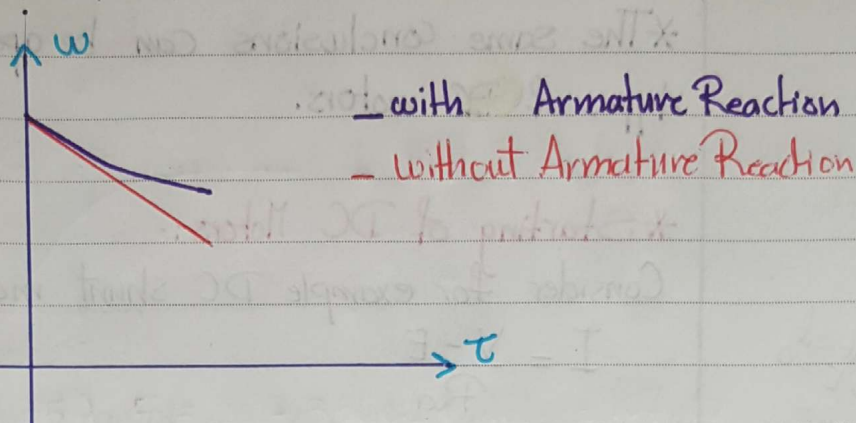 ω
_ with Armature Reaction
- without Armature Reaction
τ